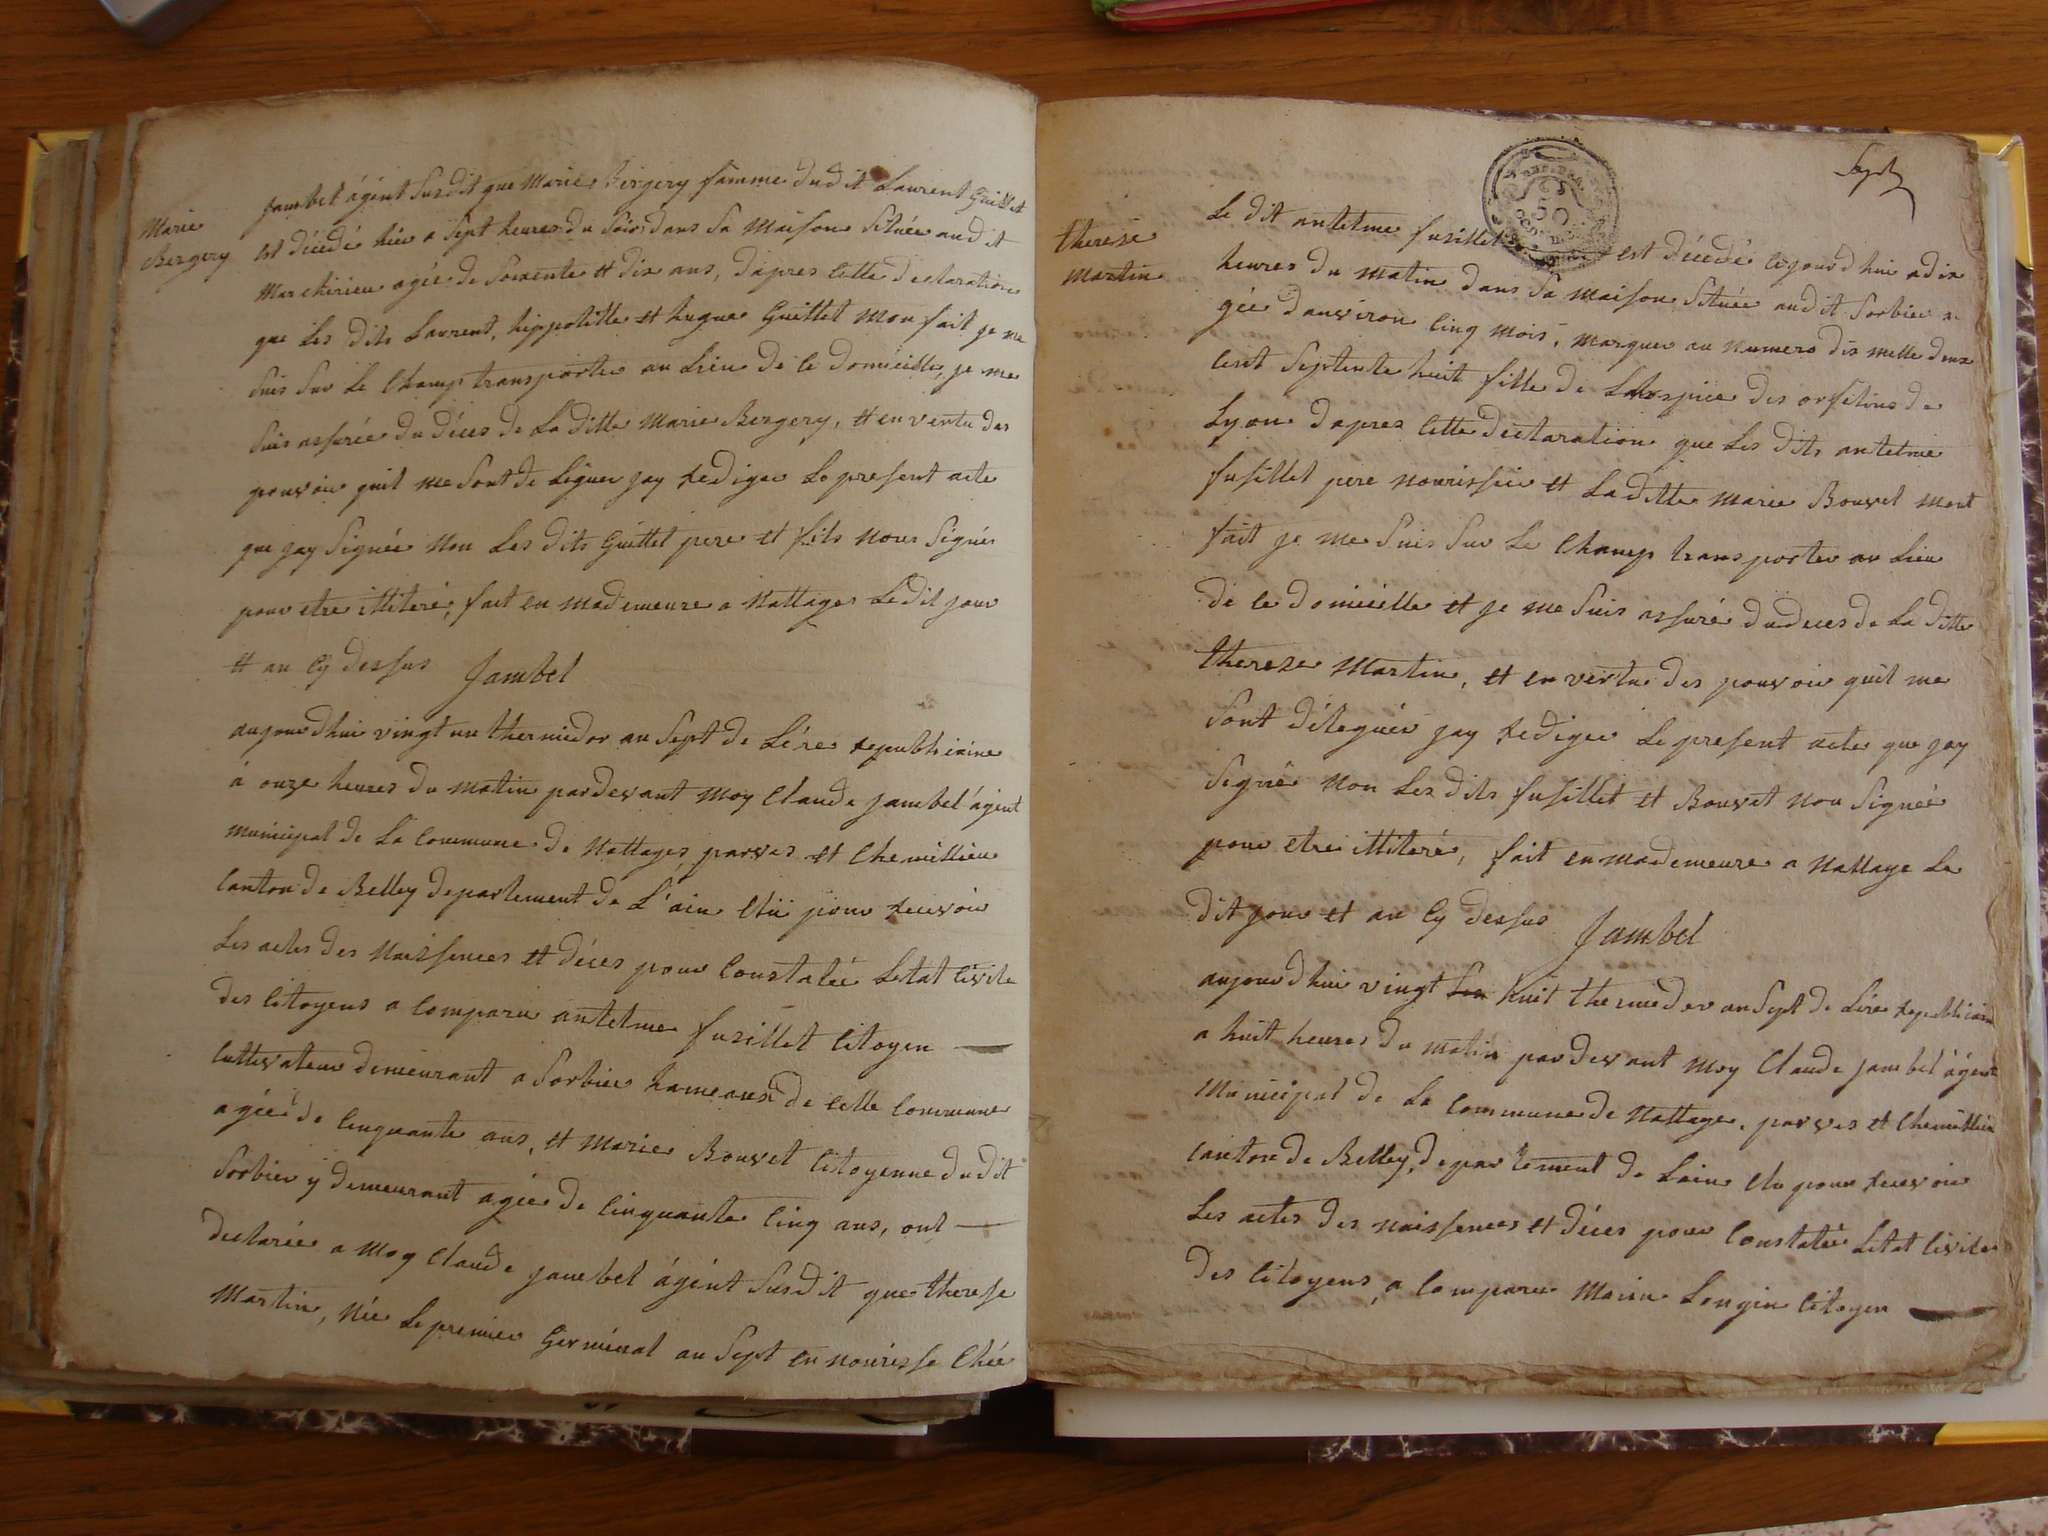 Marie
Bergery
Jambel ágent Susdit que Marie Bergery famme dudit Laurent Guillet
est décédé hiér a Sept heures du Soir dans Sa Maison Située audit
Marchirieu agée de Soixente et dix ans, dapres cette declaration
que Les dits Laurent, hippolitte et hugue Guillet mon fait je me
Suis Sur Le Champ transporter au Lieu de ce domicille, je me
Suis assurée du déces de La ditte Marie Bergery, et en vertu des
pouvoir quil me Sont de Léguer jay rediger Le present acte
que jay Signée Non Les dits Guillet pere et fils nous Signés
pour etre ittiteré, fait en mademeure a Nattages Ledit jour
et an Cy dessus Jambel
aujourdhui vingt un thermidor an Sept de Lére republiciaine
á onze heures du matin pardevant Moy Claude jambel ágent
municipal de La Commune de Nattages parves et Chemillieu
Canton de Belley departement de L'ain Elü pour recevoir
Les actes des Naissences et déces pour Constatée Letat Civile
des Citoyens a Comparu antelme fusillet Citoyen
Cultivateur demeurant a Sorbier hameaux de Cette Commune
agée de Cinquante ans, et Marie Bouvet Citoyenne dudit
Sorbier y demeurant agée de Cinquante Cinq ans, ont
declarée a Moy Claude jambel ágént Susdit que therese
Martin, Née Le premier Germinal an Sept en nourisse Chée
Sept
therese
martin
Le dit antelme fusillet est décédé cejourdhui a dix
heures du matin dans Sa maison Située audit Sorbier a
gée danviron Cinq mois, marquer au numero dix melle deux
Cent Septente huit fille de Lhospice des orfelins de
Lyon dapres Cette declaration que Les dits antelme
fusillet pere nourissier et Laditte Marie Bouvet mont
fait je me Suis Sur Le Champ transporter au Lieu
de ce domicille et je me Suis assuré dudeces de La ditte
thereze Martin, et en vertu des pouvoir quil me
Sont déleguér jay rediger Le present acte que jay
Signée Non Les dits fusillet et Bouvet non Signée
pour etre ittiteré, fait en mademeure a Nattage Le
dit jour et an Cy dessus Jambel
aujourdhui vingt huit thermidor an Sept de Lére republiciaine
a huit heures du matin pardevant Moy Claude jambel ágent
Municipal de La Commune de Nattage, parves et Chemillieu
Canton de Belley, departement de Lain Elu pour recevoir
Les actes des naissences et déces pour Constatée Letat Civile
des Citoyens, a Comparu Longin Citoyen